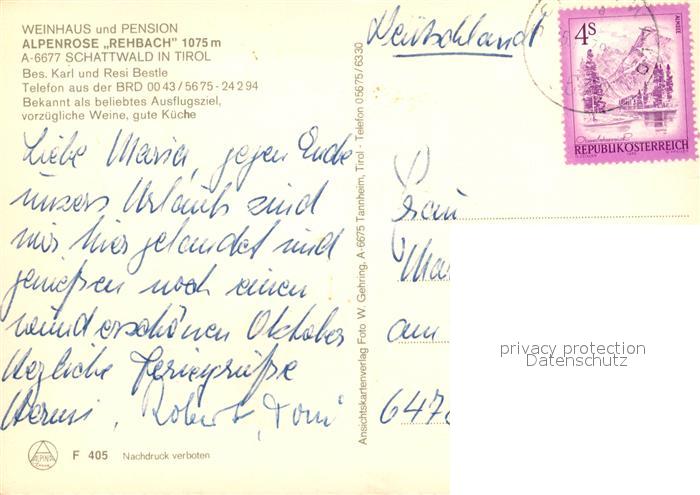 WEINHAUS und PENSION
ALPENROSE „REHBACH" 1075 m
A-6677 SCHATTWALD IN TIROL
Bes. Karl und Resi Bestle
Telefon aus der BRD 00 43 / 56 75 - 2 42 94
Bekannt als beliebtes Ausflugsziel,
vorzügliche Weine, gute Küche
Liebe Maria, gegen Ende
unsers Urlaubs sind
wir hier gelandet und
genießen noch einen
wunderschönen Oktober
Herzliche Feriengrüße
Robert, Toni
F 405 Nachdruck verboten
Ansichtskartenverlag Foto W. Gehring, A-6675 Tannheim, Tirol - Telefon 05675/6330
Deutschland
4 S
ALMSEE
REPUBLIK ÖSTERREICH
Frau
Mar
am
647
privacy protection
Datenschutz